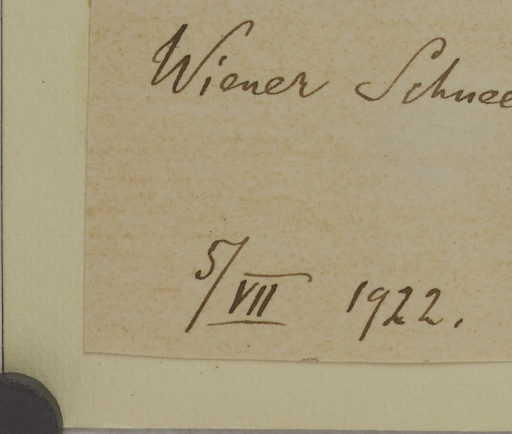 Wiener Schnee
5/VII 1922.